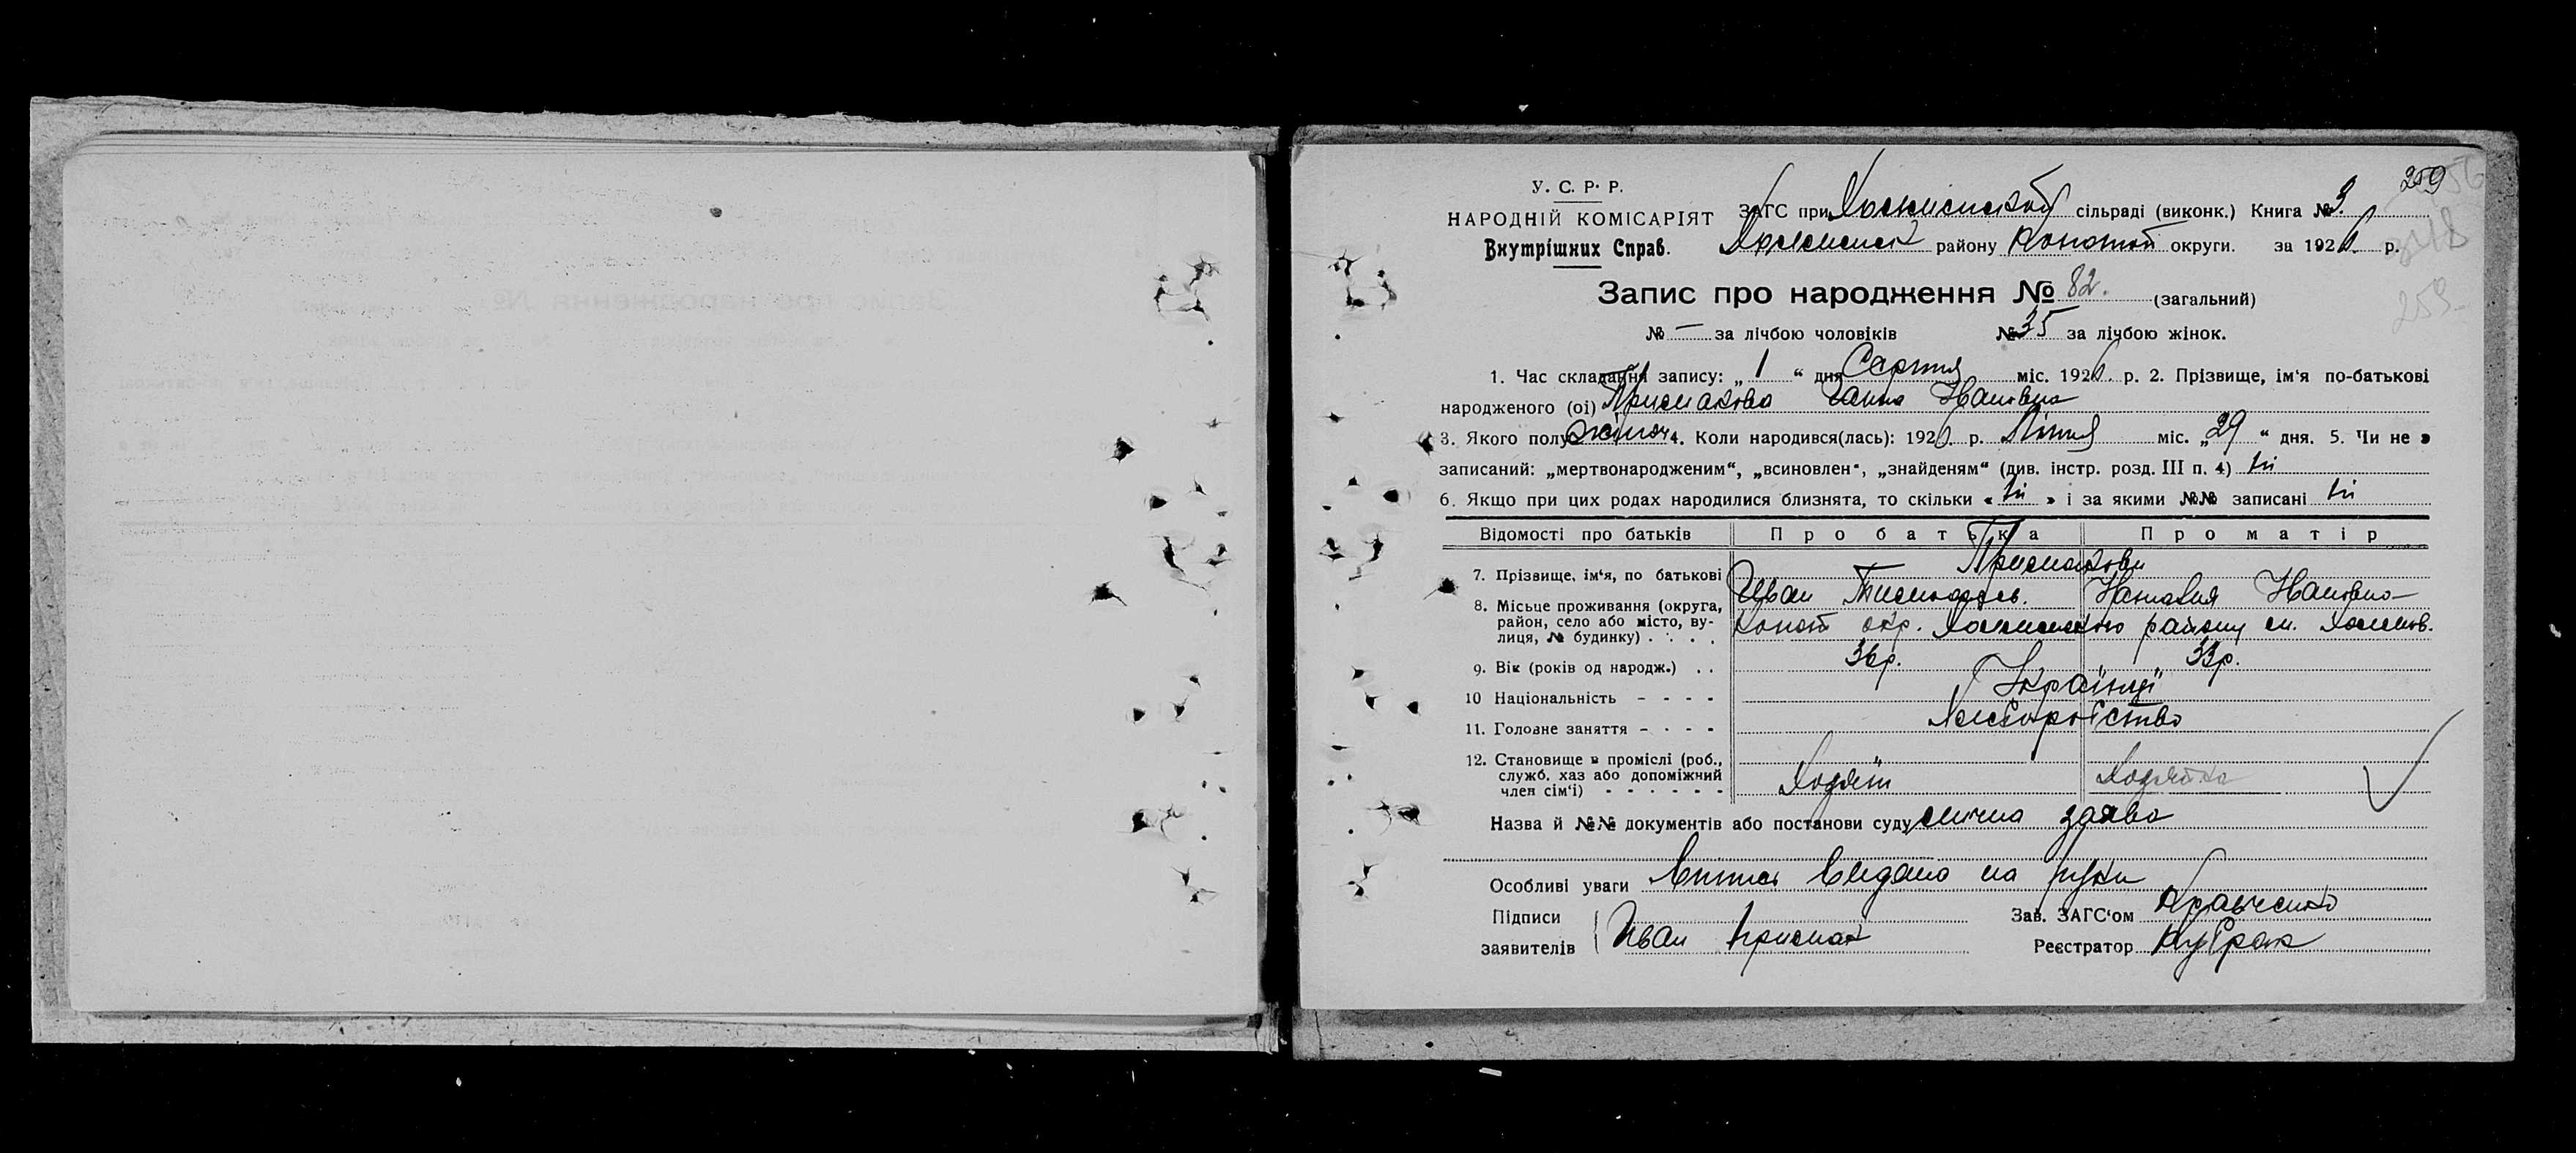 259
У. С. Р. Р.
НАРОДНІЙ КОМІСАРІЯТ
Внутрішних Справ.
ЗАГС при сільраді (виконк.) Книга № 3.
району Конотоп округи. за 1926 р.
Запис про народження № 82. (загальний)
№ — за лічбою чоловіків № 35 за лічбою жінок.
1. Час складання запису: „ 1 “ дня Серпня міс. 1926. р. 2. Прізвище, ім'я по-батькові
народженого (ої) Примакова Ганна Ивановна
3. Якого полу жіноч 4. Коли народився(лась): 1926. р. Липня міс. „29 “ дня. 5. Чи не є
записаний: „мертвонародженим“, „всиновлен“, „знайденям“ (див. інстр. розд. III п. 4) ні
6. Якщо при цих родах народилися близнята, то скільки « ні » і за якими №№ записані ні
Відомості про батьків Про батька Про матір
7. Прізвище, ім'я, по батькові Примакови
Иван Тимофеев. Наталия Ивановна
8. Місьце проживання (округа, район, село або місто, вулиця, № будинку) . . . . Конот окр. району м.
9. Вік (років од народж.) . . 36р. 33р.
10 Національність - - - - Українці
11. Головне заняття - - - - Хліборобство
12. Становище в проміслі (роб., служб. хаз або допоміжний член сім'і) - - - - - - Ходяїн Ходяйка
Назва й №№ документів або постанови суду слична здява
Особливі уваги Випись видано на руки
Підписи
заявителів Иван Примак
Зав. ЗАГС'ом Кравченко
Реєстратор Кубрак